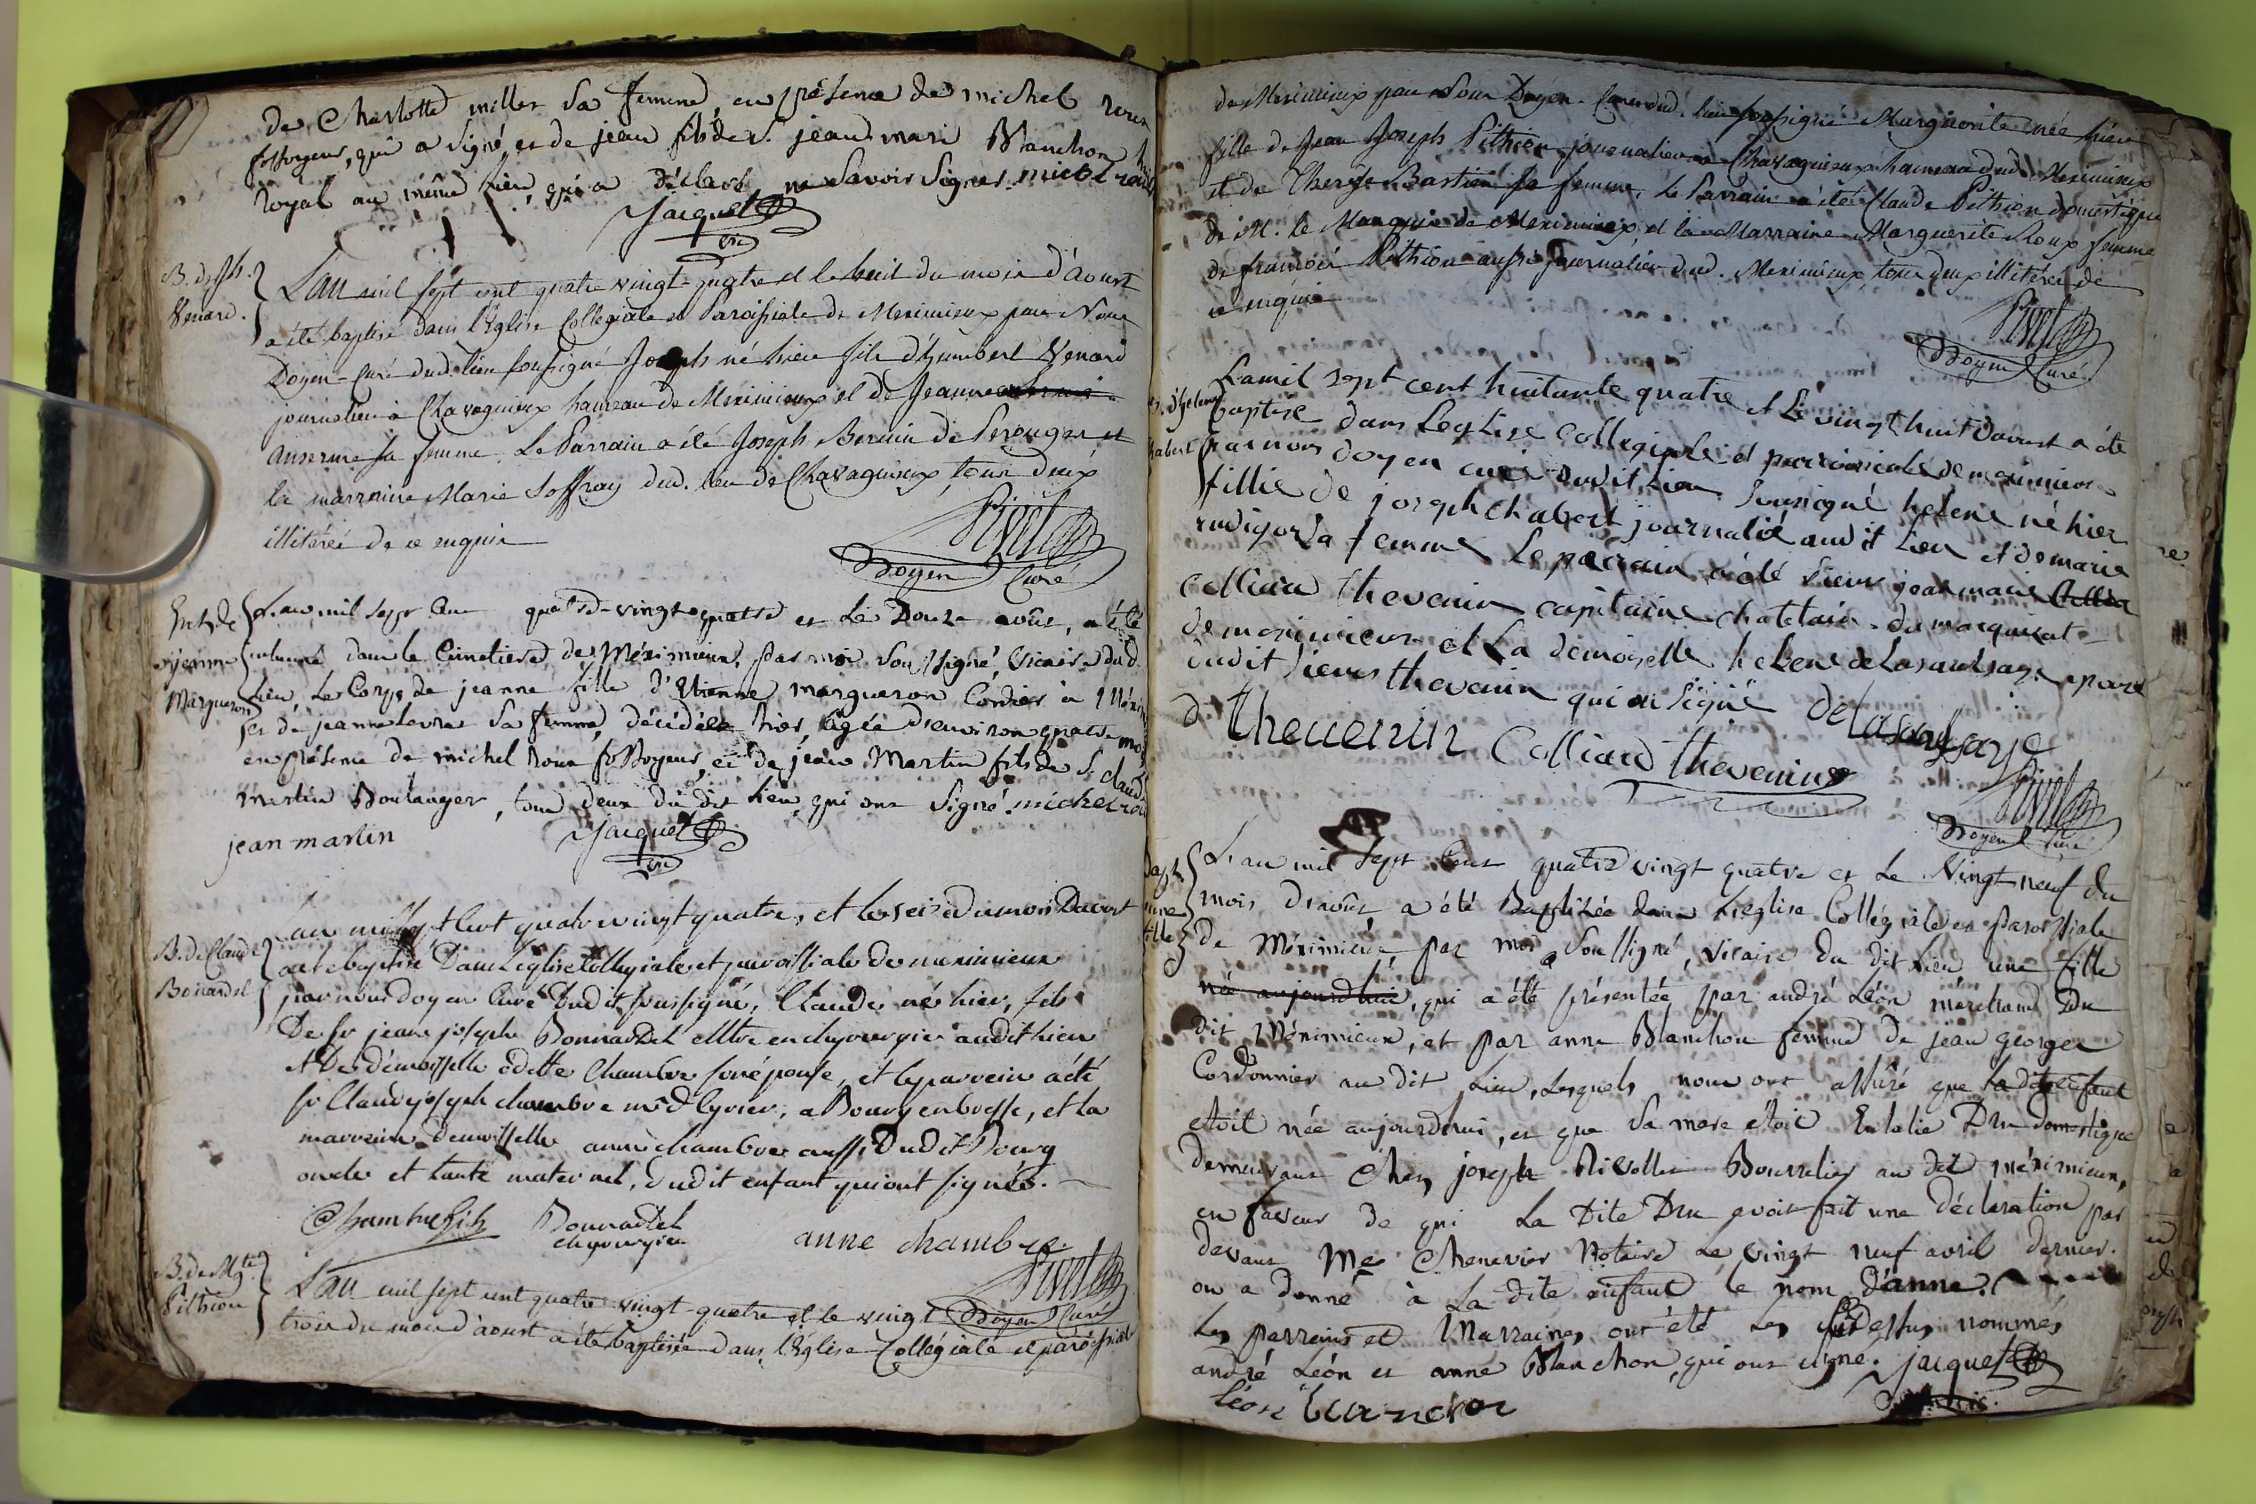 de Charlotte miller sa femme, en présence de michel roux
fossoyeur, qui a signé, et de jean fils de Sr. jean mari Blanchon
royal au même lieu, qui a déclaré ne savoir signer. michel roux
Jacquet
vic
B. de Jph.
Venard.
L'an mil sept cent quatre vingt-quatre et le huit du mois d'Aoust
a été baptisé dans l'Eglise Collegiale et Paroissiale de Meximieux par Nous
Doyen-Curé dud. lieu soussigné Joseph né hier fils d'humbert Venard
journalier à Chavagnieux hameau de Meximieux et de Jeanne
anserme sa femme. Le Parrain a été Joseph Bernin de Perouges et
la marraine Marie Joffray dud. lieu de Chavagnieux, tous deux
illitérés de ce enquis
Pivet
Doyen Curé
Ent. de
jeanne
Margueron
L'an mil sept Cent quatre-vingt-quatre et Le Douze août, a été
inhumé dans le Cimetiere de Méximieux, par moi soussigné, vicaire dud.
Lieu, Le Corps de jeanne fille d'Etienne margueron Cordier à Méxim
et de jeanne Levrat sa femme, décédée hier, agée d'environ quatre mois
en présence de michel Roux fossoyeur, et de jean Martin fils de Sr. claude
Martin Boulanger, tous deux du dit Lieu, qui ont signé. michel roux
jean martin
Jacquet
vic
B. de Claude
Bonardel
L'an mil sept Cent quatre vingt quatre, et le seize du mois Daoust
a eté baptisé Dans L'eglise Collegiale et paroissiale de meximieux
par nous doyen Curé Dudit soussigné, Claude né hier, fils
De Sr jean joseph Bonnardel Mtre en chyrurgie audit lieu
et De démoisselle odette Chambre son épouse, et le parrein a été
Sr Claude joseph chambre md Cyrier, a Bourg en bresse, et la
marreine Demoisselle anne chambre aussi Dudit Bourg
oncle et tante maternel, Dudit enfant qui ont signés.
Chambre fils Bonnardel
chyrurgien
anne chambre
Pivet
Doyen Curé
B. de Mgte.
Pithion
L'an mil sept cent quatre-vingt-quatre et le vingt
trois du mois d'aoust a été baptisée dans l'Eglise Collégiale et paroissiale
de Meximieux par Nous Doyen-Curé dud. lieu soussigné Marguerite née hier
fille de Jean Joseph Pithion journalier à Chavagnieux hameau dud. Meximieux
et de Therese Bastien sa femme. Le Parrain a été Claude Pithion domestique
de M. le Marquis de Meximieux, et la Marraine Marguerite Roux femme
de françois Pithion aussi journalier dud. Meximieux, tous deux illitérés de
ce enquis
Pivet
Doyen Curé
B. d'helene
Chabert
Lamil sept cent huitante quatre et Le vingt huit d'aoust a été
Baptisé dans Leglise collegiale et parroissiale de meximieux
par nous doyen curé dudit Lieu soussigné helene né hier
fillie de joseph chabert journalié audit Lieu et de marie
rudigoz sa femme Le parrain a été sieur jean marie
colliard thevenin capitaine chatelain du marquisat
de meximieux et La demoiselle helene de Lasaulsaye epouse
dudit sieur thevenin qui on signé Delasaulsaye
D thevenin Colliard thevenin
Pivet
Doyen Curé
Bapt.
une
fille
L'an mil Sept Cent quatre vingt quatre et Le Vingt neuf du
mois d'août, a été Baptisée dans L'eglise Collégiale et paroissiale
de Méximieux, par moi soussigné, vicaire du dit Lieu une fille
née aujourdhui, qui a été présentée par andré Léon marchand Du
dit Méximieux, et par anne Blanchon femme de jean george
Cordonnier au dit Lieu, Lesquels nous ont assuré que la dite enfant
etoit née aujourdhui, et que sa mere étoit Eulalie Dru domestique
demeurant Chez joseph Rivollet Bourrelier au dit méximieux,
en faveur de qui La Dite Dru avoit fait une déclaration par
devant Me Chenevier Notaire Le vingt neuf avril dernier.
on a donné à La dite enfant le nom d'anne.
Les parreins et Marraines ont été Les susdessus nommés
andré Léon et anne Blanchon, qui ont signe. Jacquet
Léon blanchon